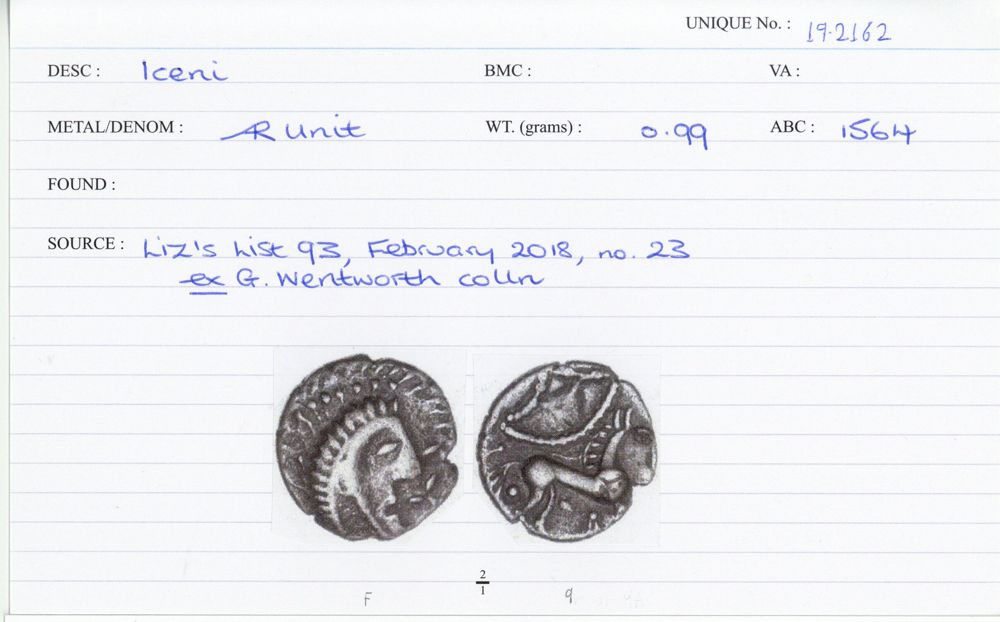 UNIQUE No. : 19.2162
DESC : Iceni BMC : VA :
METAL/DENOM : AR Unit WT. (grams) : 0.99 ABC : 1564
FOUND :
SOURCE : Liz's List 93, February 2018, no. 23
ex G. Wentworth colln
2
1
F q